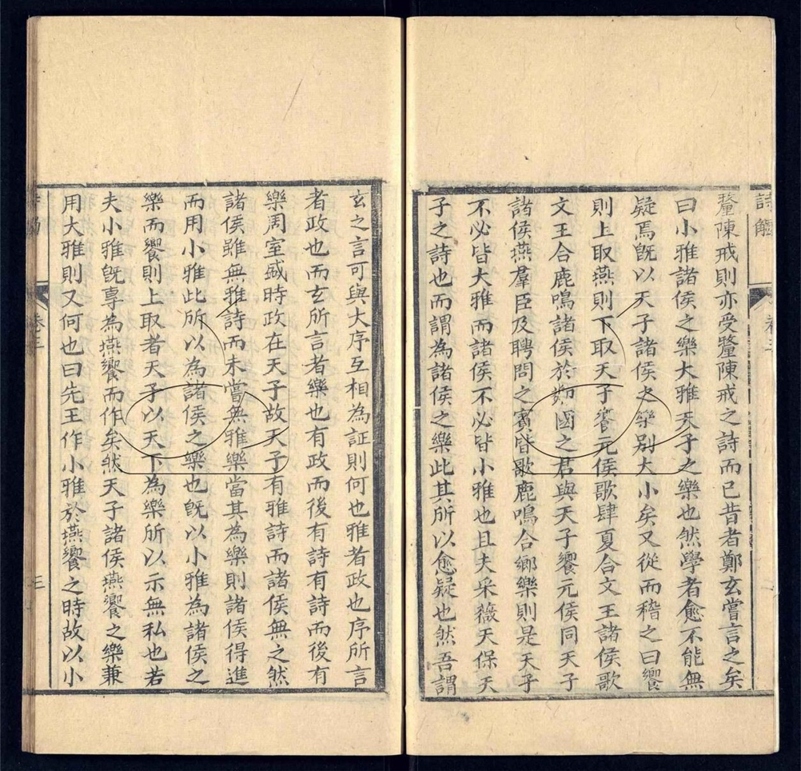 詩觸
卷三
釐陳戒則亦受釐陳戒之詩而已昔者鄭玄嘗言之矣
曰小雅諸侯之樂大雅天子之樂也然學者愈不能無
疑焉旣以天子諸侯之樂別大小矣又從而稽之曰饗
則上取燕則下取天子饗元侯歌肆夏合文王諸侯歌
文王合鹿鳴諸侯於鄰國之君與天子饗元侯同天子
諸侯燕羣臣及聘問之賓皆歌鹿鳴合鄉樂則是天子
不必皆大雅而諸侯不必皆小雅也且夫采薇天保天
子之詩也而謂為諸侯之樂此其所以愈疑也然吾謂
玄之言可與大序互相為証則何也雅者政也序所言
者政也而玄所言者樂也有政而後有詩有詩而後有
樂周室盛時政在天子故天子有雅詩而諸侯無之然
諸侯雖無雅詩而未嘗無雅樂當其為樂則諸侯得進
而用小雅此所以為諸侯之樂也旣以小雅為諸侯之
樂而饗則上取者天子以天下為樂所以示無私也若
夫小雅旣專為燕饗而作矣然天子諸侯燕饗之樂兼
用大雅則又何也曰先王作小雅於燕饗之時故以小
卷三
三